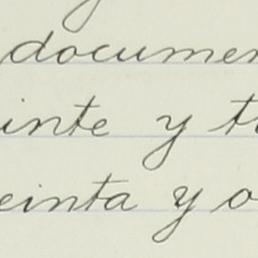 documen
inte y t
einta y o